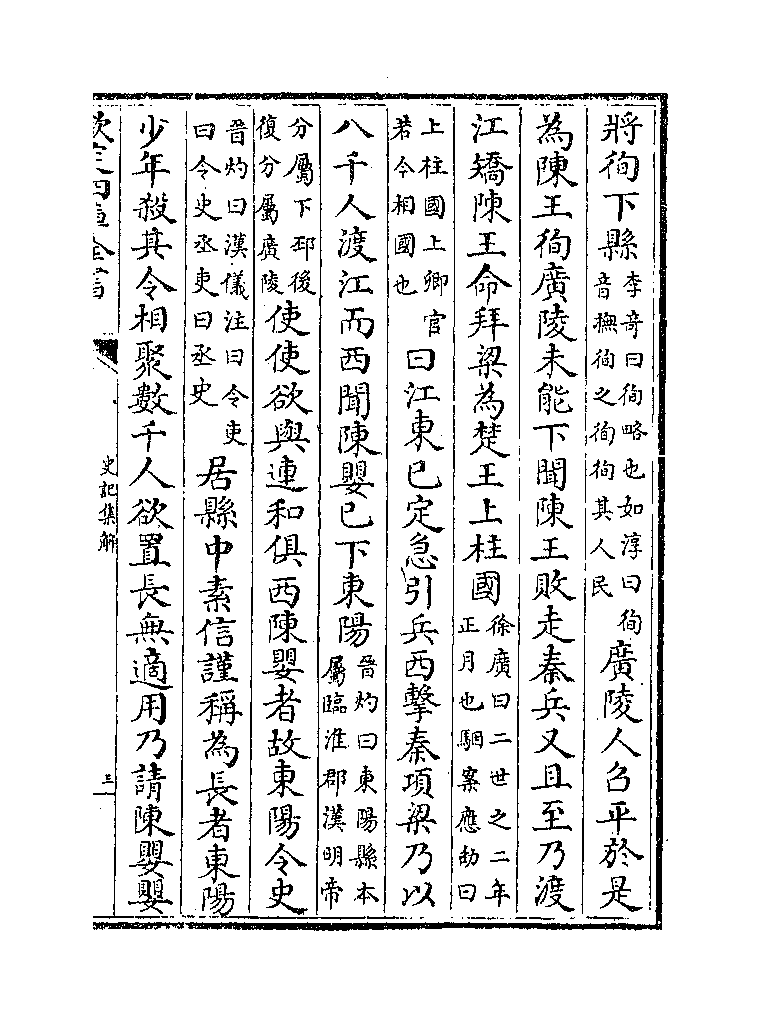 將徇下縣李竒曰徇略也如淳曰徇音撫徇之徇徇其人民廣陵人召平於是
為陳王徇廣陵未能下聞陳王敗走秦兵又且至乃渡
江矯陳王命拜梁為楚王上柱國徐廣曰二世之二年正月也駰案應劭曰
上柱國上卿官若今相國也曰江東已定急引兵西擊秦項梁乃以
八千人渡江而西聞陳嬰已下東陽晉灼曰東陽縣本屬臨淮郡漢明帝
分屬下邳後復分屬廣陵使使欲與連和俱西陳嬰者故東陽令史
晉灼曰漢儀注曰令吏曰令史丞吏曰丞史居縣中素信謹稱為長者東陽
少年殺其令相聚數千人欲置長無適用乃請陳嬰嬰
欽定四庫全書
史記集解
三